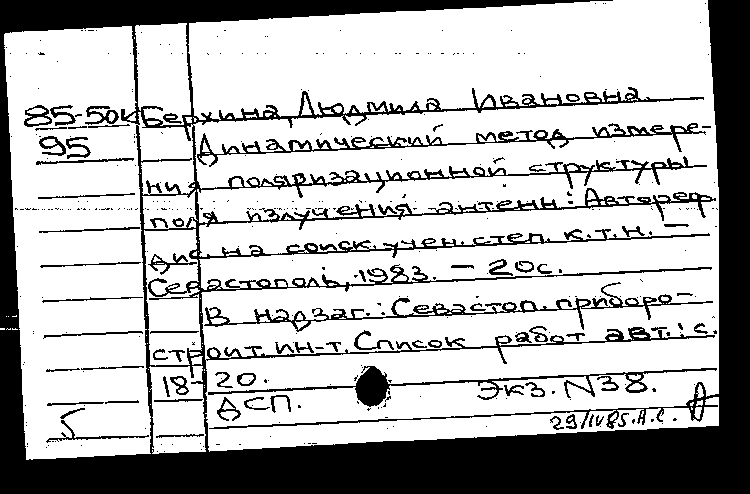 85-50к Берхина, Людмила Ивановна.
95 Динамический метод измере-
ния поляризационной структуры
поля излучения антенн: Автореф.
дис. на соиск. учен. степ. к.т.н. –
Севастополь, 1983. – 20с.
В надзаг.: Севастоп. приборо-
строит. ин-т. Список работ авт.: с.
18-20.
ДСП. Экз. N38.
5 29/IV85. А.С. Д